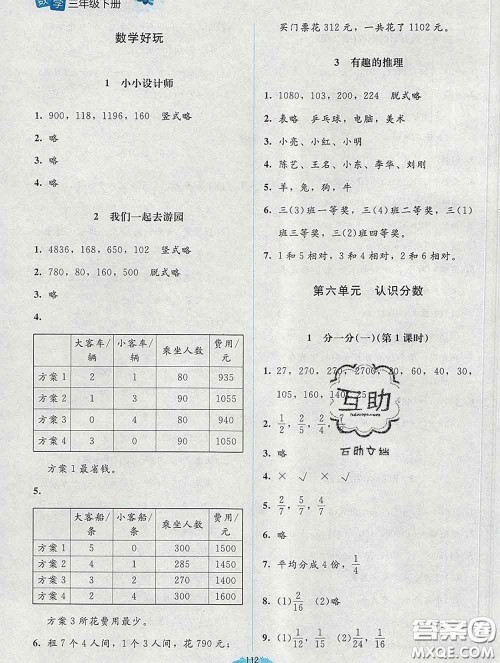 数学三年级下册
数学好玩
1 小小设计师
1. 900, 118, 1196, 160 竖式略
2. 略
3. 略
4. 略
2 我们一起去游园
1. 4836, 168, 650, 902 竖式略
2. 780, 80, 160, 500 脱式略
3. 略
4.
大客车/辆 小客车/辆 乘坐人数 费用/元
方案1 2 1 80 935
方案2 1 4 90 1050
方案3 0 4 80 940
方案4 3 0 90 1050
方案1最省钱。
5.
大客船/条 小客船/条 乘坐人数 费用/元
方案1 5 0 300 1500
方案2 4 3 300 1650
方案3 3 4 285 1450
方案4 3 5 300 1600
方案3所花费用最少。
6. 租7个4人间, 1个3人间, 花790元;
买门票花312元, 一共花了1102元。
3 有趣的推理
1. 1080, 103, 200, 224 脱式略
2. 表略 乒乓球, 电脑, 美术
3. 小亮、小红、小明
4. 陈艺、王名、小东、李华、刘刚
5. 羊, 兔, 狗, 牛
6. 三(3)班一等奖, 三(2)班二等奖, 三(1)
班三等奖, 三(4)班四等奖。
7. 1和5相对, 3和2相对, 4和6相对。
第六单元 认识分数
1 分一分(一)(第1课时)
1. 27, 270, 270, 2700, 20, 60, 30,
105, 160, 140, 25
2. 1/2, 2/5, 4/7
3. 略
4. × √ × √
5. 2/7, 4/5, 4/7, 1/6
6. 略
7. 平均分成4份, 1/4
8. (1) 2/16 (2) 7/16
9. (1) 1/2 (2)
112
互助
互助文档
答案圈
MXQE.COM